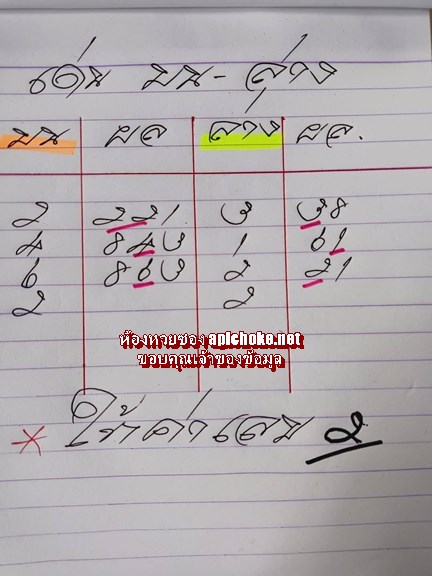 เด่น บน - ล่าง
บน ผล ล่าง ผล.
2 221 3 38
4 843 1 61
6 863 2 21
2 2
ห้องหวยซอง apichoke.net
ขอบคุณเจ้าของข้อมูล
* ให้ค่าเสม 2